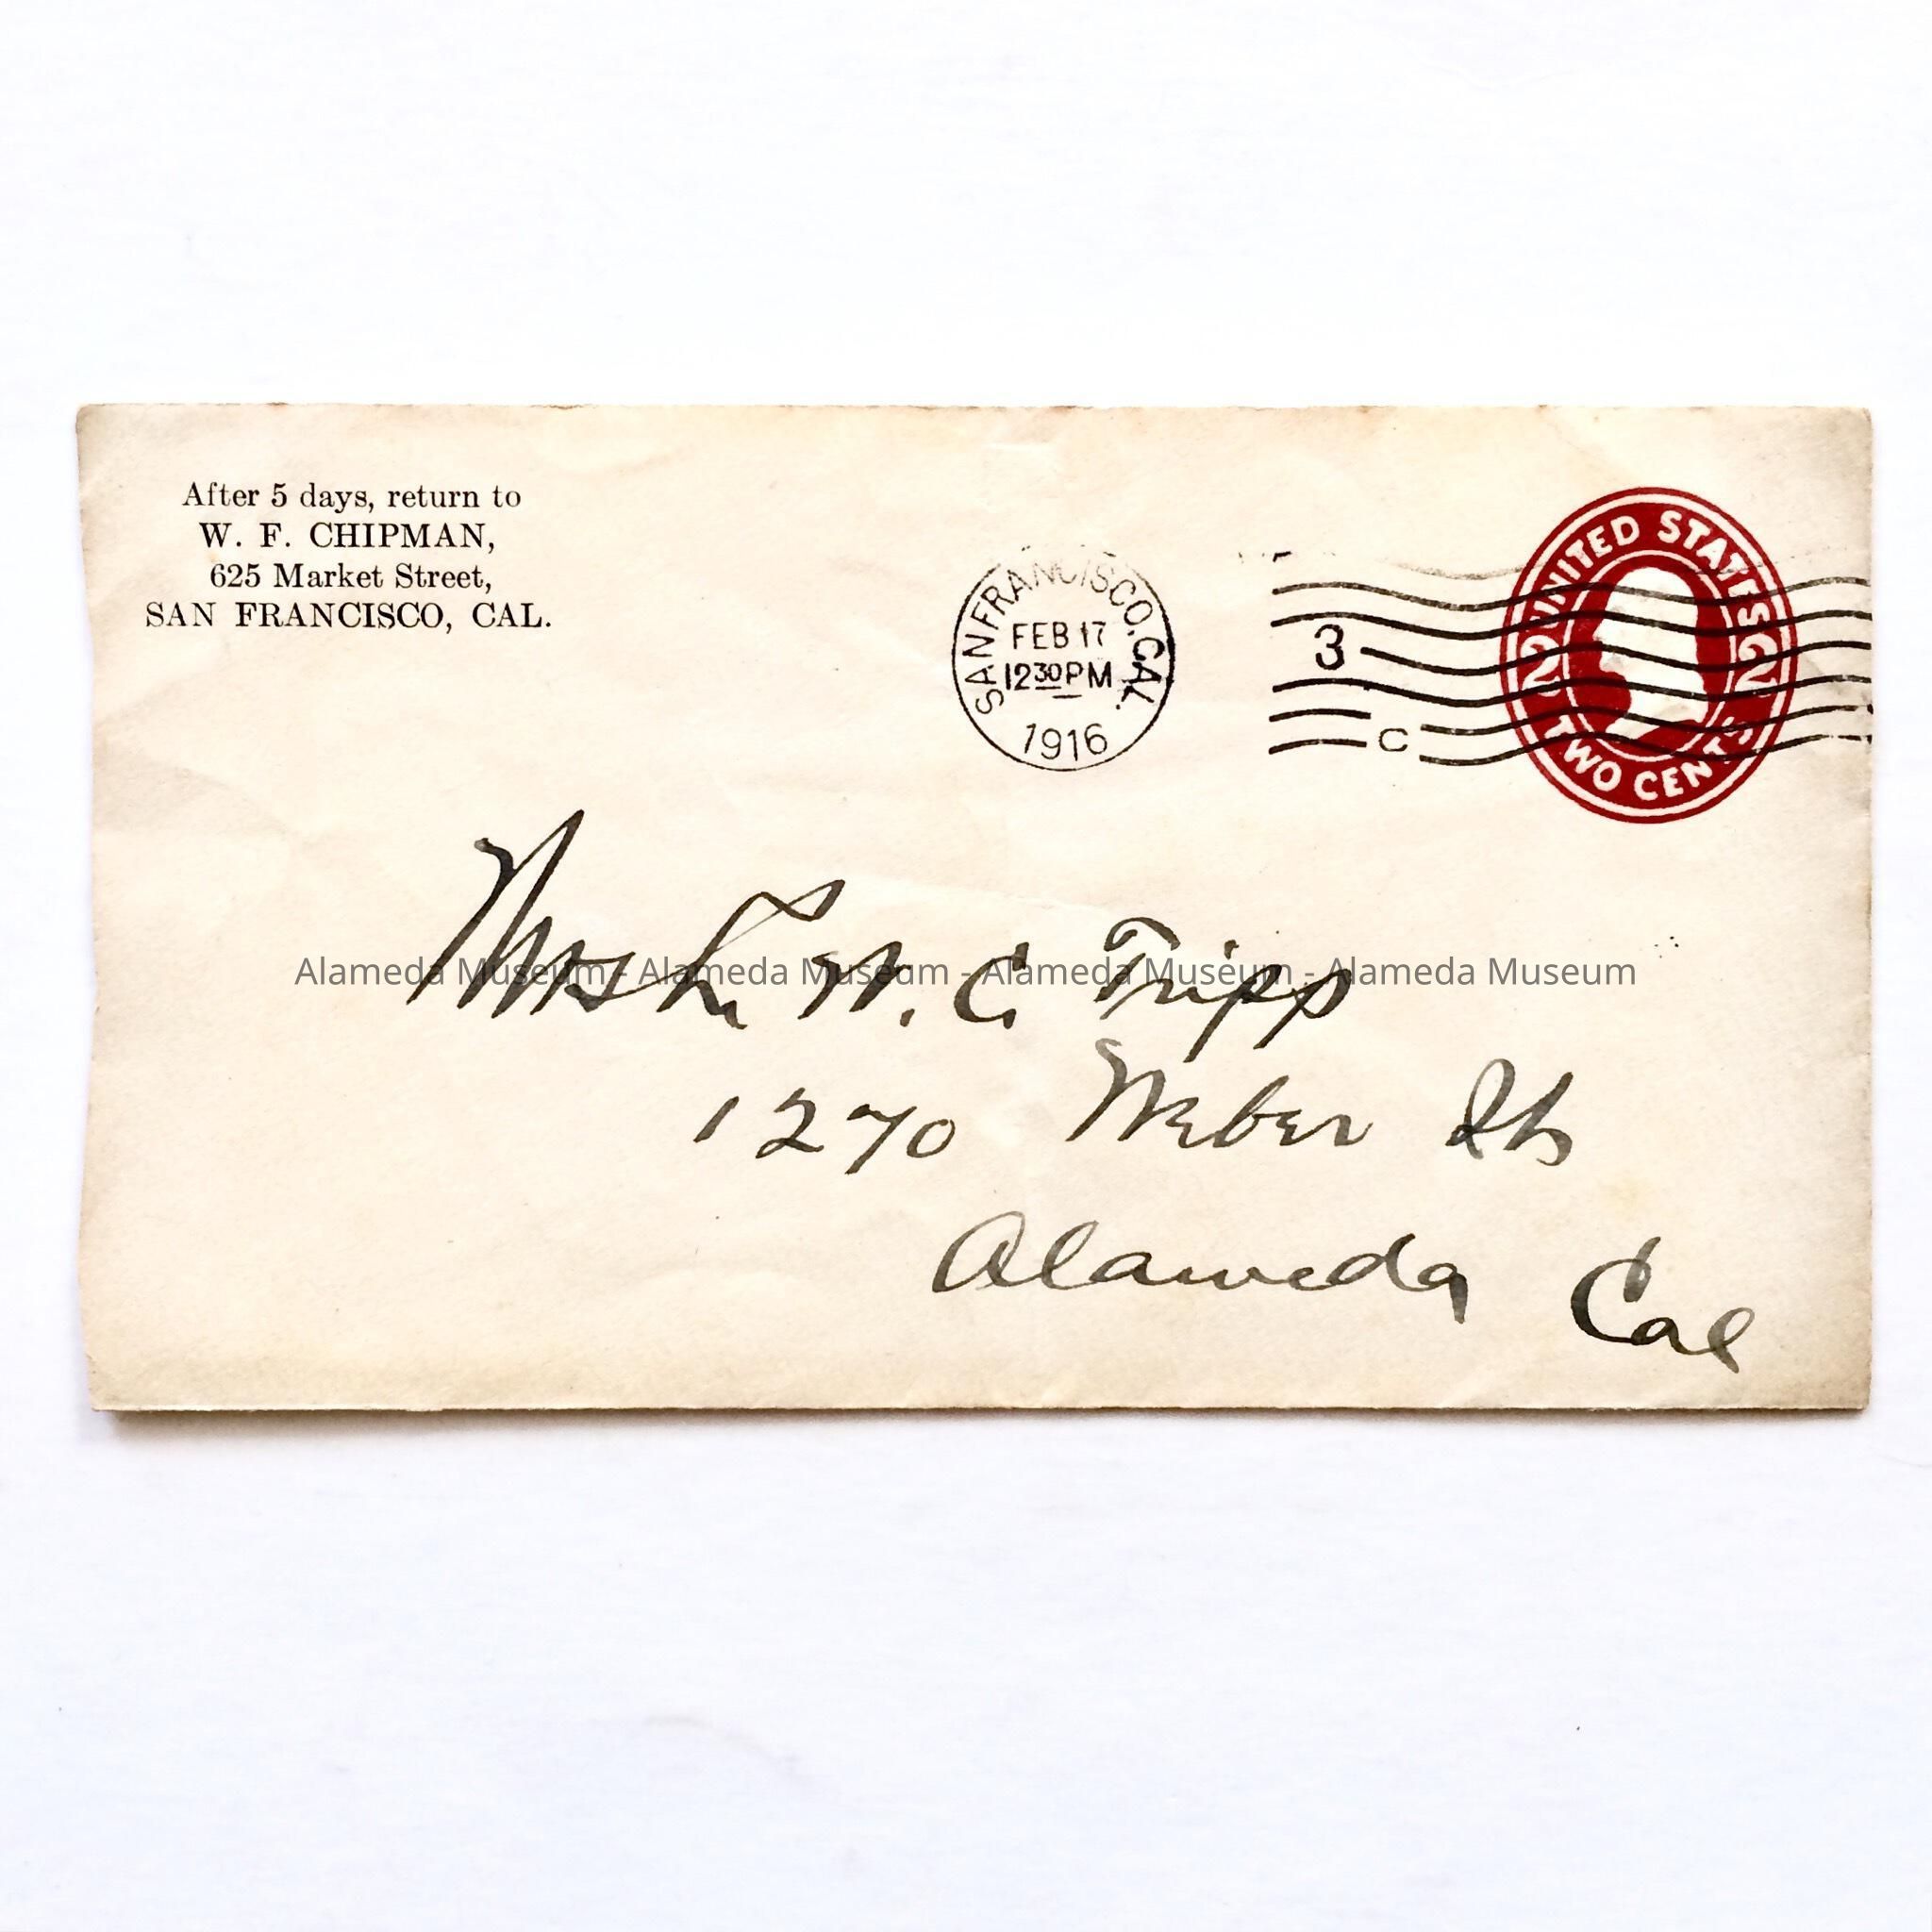 After 5 days, return to
W. F. CHIPMAN,
625 Market Street,
SAN FRANCISCO, CAL.
SAN FRANCISCO, CAL.
FEB 17
12 30 PM
1916
3
C
UNITED STATES
2 2
TWO CENTS
C Tripp
Alameda Museum - Alameda Museum - Alameda Museum - Alameda Museum
1270 Weber St
Alameda Cal